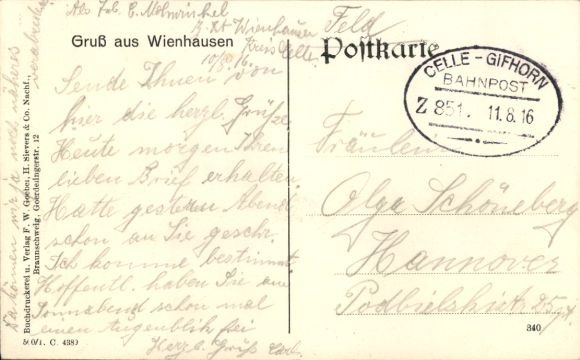 Abs. C.
z. Zt Wienhausen
Kreis Celle
10/8. 16.
Gruß aus Wienhausen
Sende Ihnen von
hier die herzl. Grüße
Heute morgen Ihren
lieben Brief erhalten.
Hatte gestern Abend
schon an Sie geschr.
Ich komme bestimmt.
Hoffentl. haben Sie am
Sonnabend schon mal
einen Augenblik frei
Herzl. Gruß Carl.
Da können wir ja noch näheres
verabreden
Buchdruckerei u. Verlag F. W. Goebel, H. Sievers & Co. Nachf.,
Braunschweig, Goerdelingerstr. 12
500/1. C. 4389
Feld
Postkarte
CELLE - GIFHORN
BAHNPOST
Z 851. 11.8.16
Fräulein
Olga Schöneberg
Hannover
Podbielskistr. 25
340